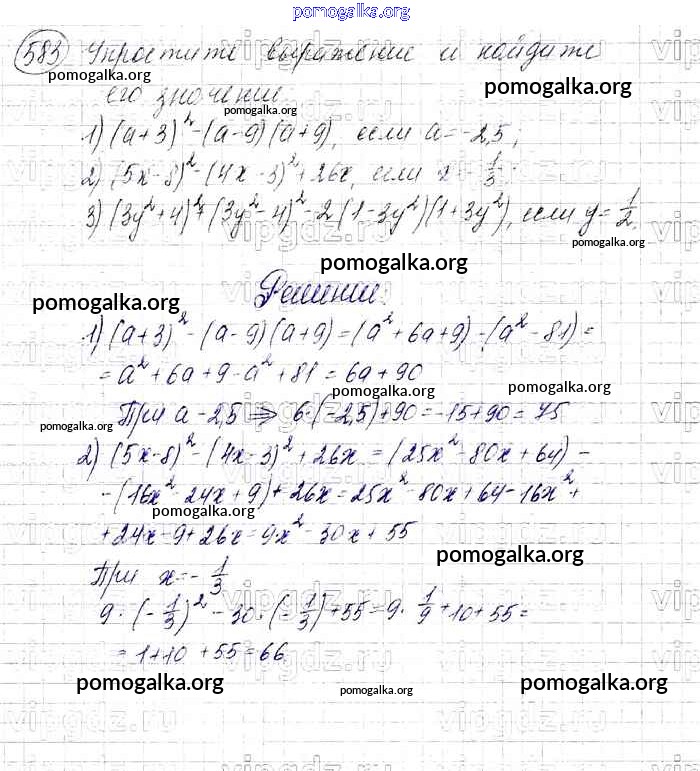 pomogalka.org
583 Упростите выражение и найдите
pomogalka.org
pomogalka.org
его значение.
pomogalka.org
1) (a+3)² - (a-9)(a+9), если a=-2,5;
pomogalka.org
2) (5x-8)² - (4x-3)² + 26x, если x = -1/3
3) (3y²+4)² + (3y²-4)² - 2(1-3y²)(1+3y²), если y = 1/2.
pomogalka.org
pomogalka.org
Решение.
pomogalka.org
1) (a+3)² - (a-9)(a+9) = (a²+6a+9) - (a²-81) =
= a²+6a+9-a²+81 = 6a+90
pomogalka.org
pomogalka.org
При a-2,5 ⇒ 6·(-2,5)+90 = -15+90 = 75
pomogalka.org
2) (5x-8)² - (4x-3)² + 26x = (25x²-80x+64) -
- (16x²-24x+9) + 26x = 25x²-80x+64-16x²+
pomogalka.org
+24x-9+26x = 9x²-30x+55
pomogalka.org
При x=-1/3
9·(-1/3)² - 30·(-1/3)+55 = 9·1/9+10+55 =
= 1+10+55=66
pomogalka.org
pomogalka.org
pomogalka.org
vipgdz.ru